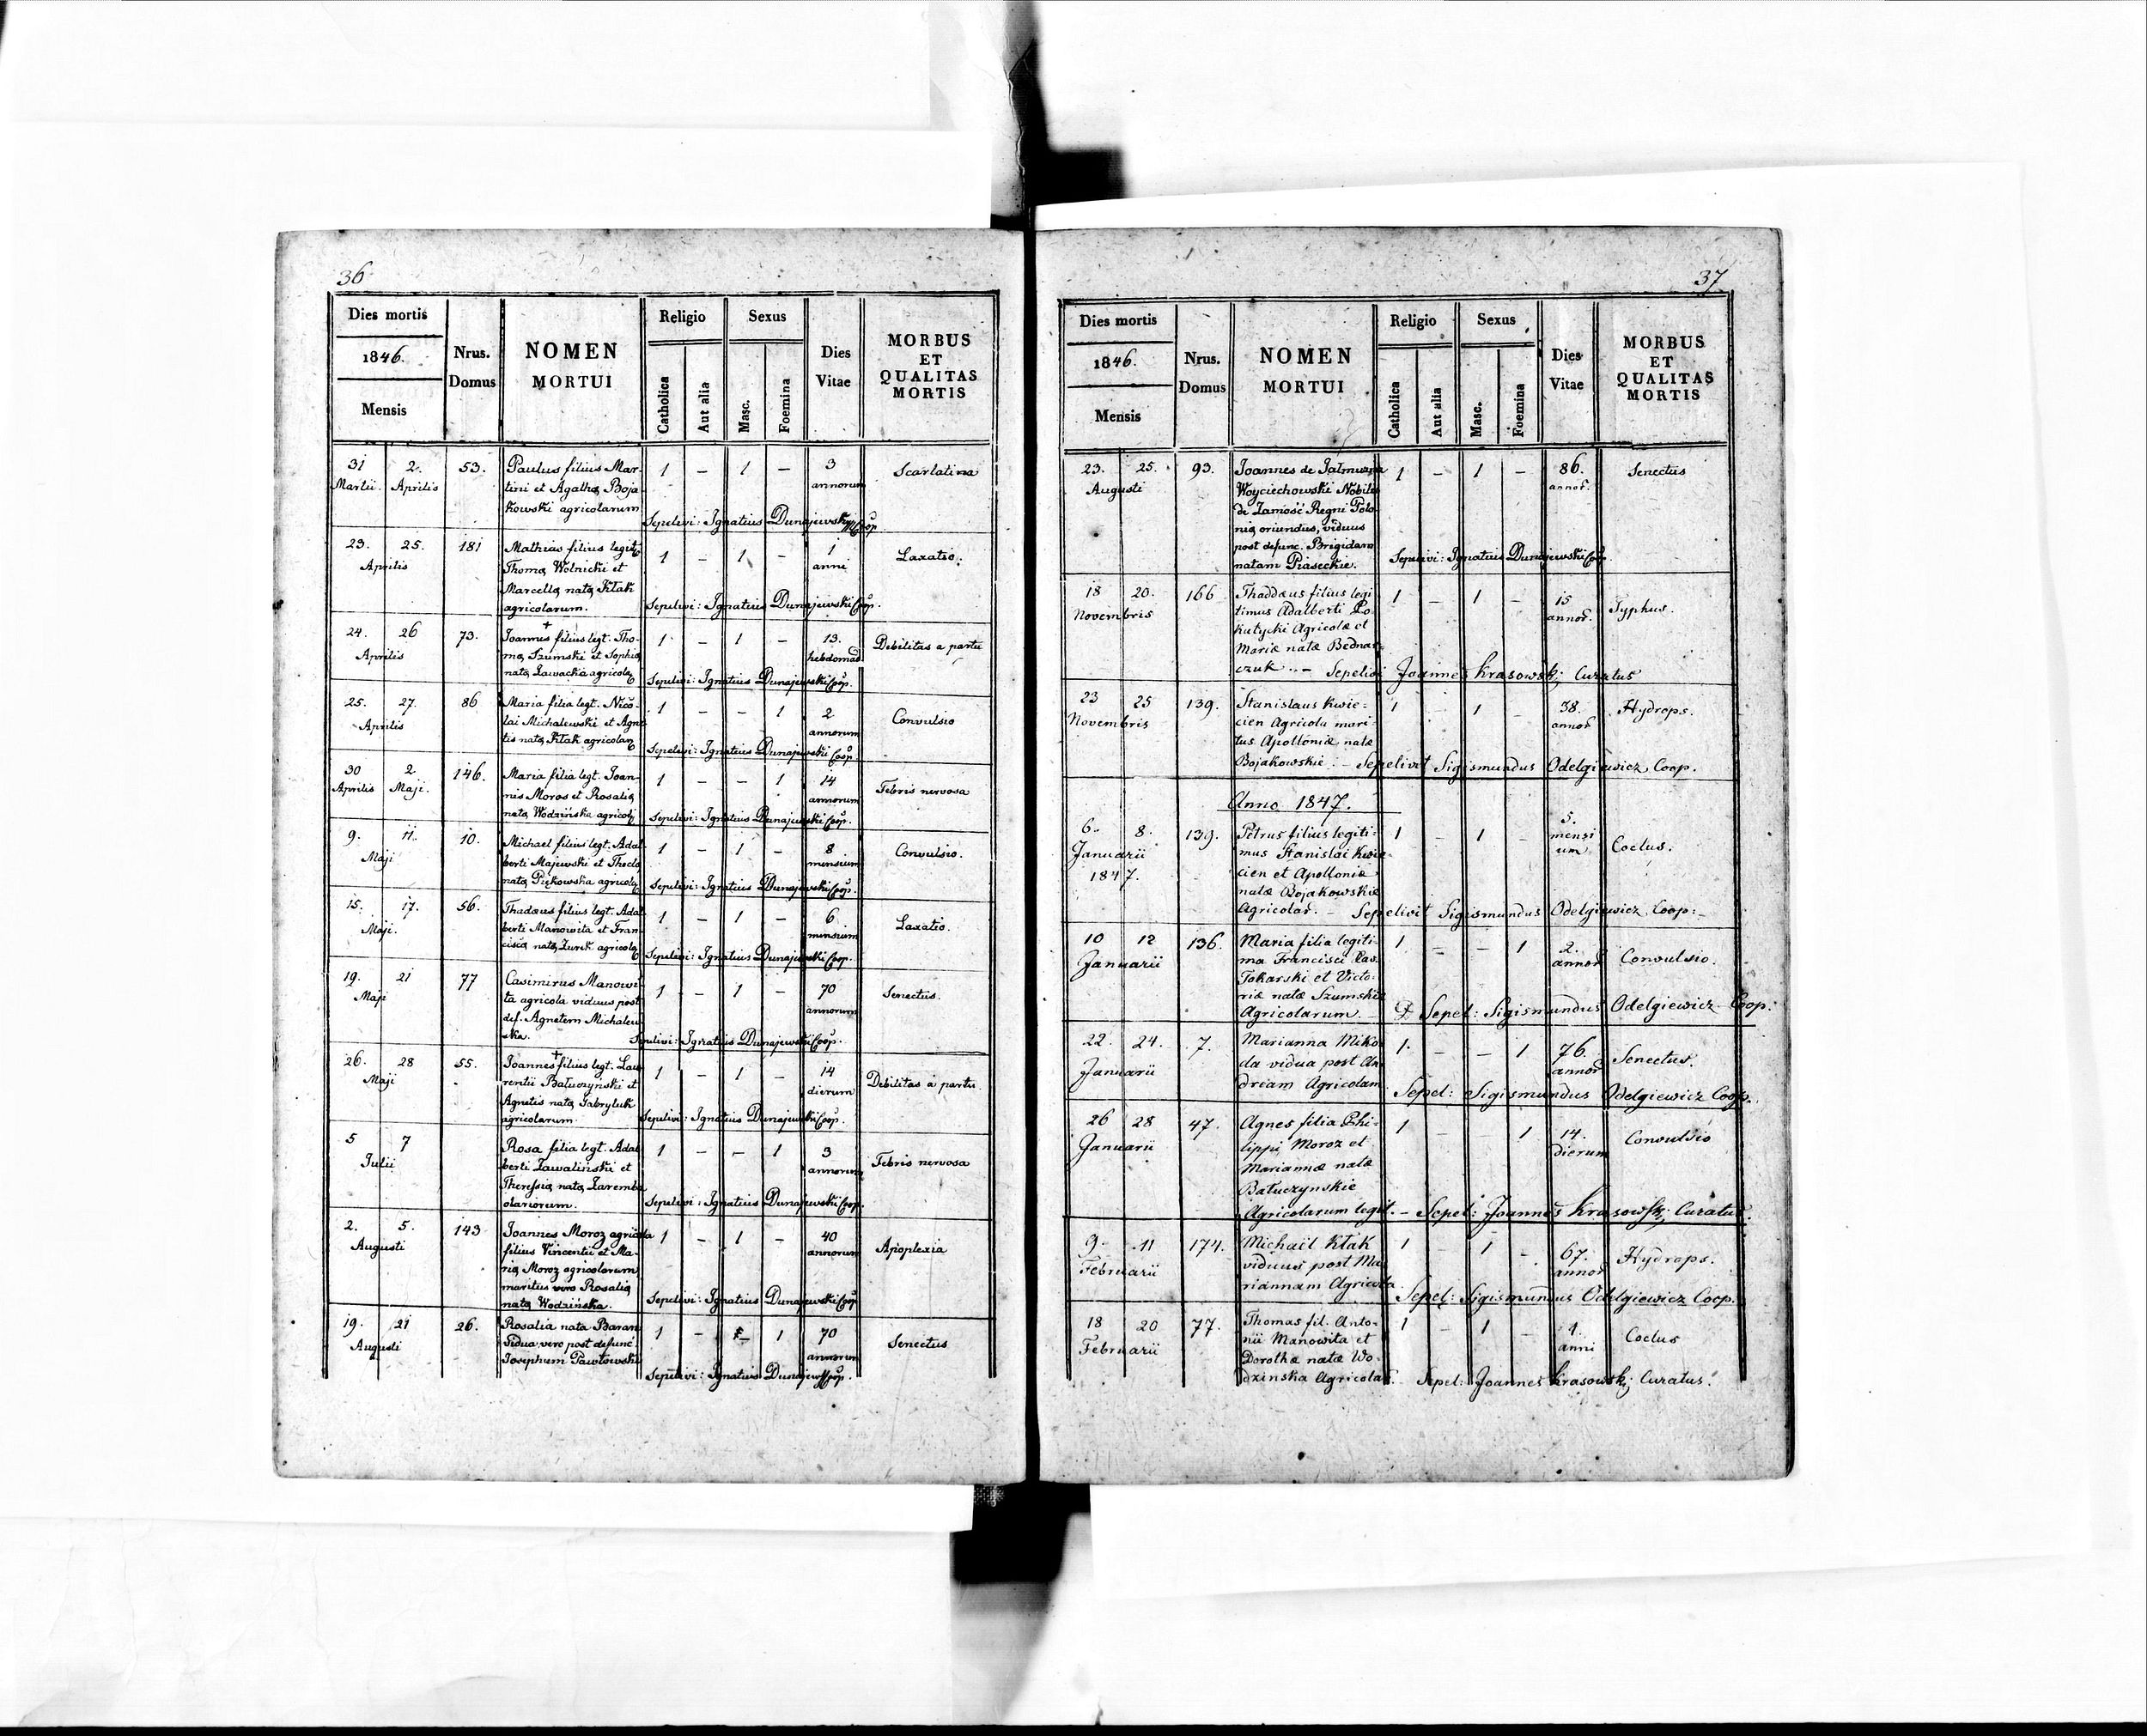 36
Dies mortis
1846.
Mensis
Nrus.
Domus
NOMEN
MORTUI
Religio
Catholica
Aut alia
Sexus
Masc.
Foemina
Dies
Vitae
MORBUS
ET
QUALITAS
MORTIS
31 2. 53. Paulus filius Mar- 1 – 1 – 3 Scarlatina
Martii. Aprilis tini et Agatha Boja annorum
kowski agricolarum
Sepelivi: Ignatius Dunajewski Coop
23. 25. 181 Mathias filius legit. 1 – 1 – 1 Laxatio.
Aprilis Thoma Wolnicki et anni
Marcella nata Kłak
agricolarum. Sepelivi: Ignatius Dunajewski Coop.
24. 26 73. Joannes filius legt. Tho- 1 – 1 – 13. Debilitas a partu
Aprilis ma Szumski et Sophia hebdomad
nata Zawacka agricola Sepelivi: Ignatius Dunajewski Coop.
25. 27. 86 Maria filia legt. Nico- 1 – – 1 2 Convulsio
Aprilis lai Michalewski et Agne annorum
tis nata Kłak agricolar Sepelivi: Ignatius Dunajewski Coop.
30 2 146. Maria filia legt. Joan- 1 – – 1 14 Febris nervosa
Aprilis Maji. nis Moros et Rosalia annorum
nata Wodzińska agricol Sepelivi: Ignatius Dunajewski Coop.
9. 11. 10. Michael filius legt. Adal 1 – 1 – 8 Convulsio.
Maji berti Majewski et Thecla mensium
nata Piękowska agricola Sepelivi: Ignatius Dunajewski Coop.
15. 17. 56. Thadaus filius legt. Adal 1 – 1 – 6 Laxatio.
Maji. berti Manowita et Fran- mensium
cisca nata Zurek agricola Sepelivi: Ignatius Dunajewski Coop.
19. 21 77 Casimirus Manowi- 1 – 1 – 70 Senectus.
Maji ta agricola viduus post annorum
def. Agnetem Michalew
ska. Sepelivi: Ignatius Dunajewski Coop.
26. 28 55. Joannes filius legt. Lau 1 – 1 – 14 Debilitas a partu.
Maji rentii Batuczynski et dierum
Agnetis nata Gabryluk
agricolarum. Sepelivi: Ignatius Dunajewski Coop.
5 7 Rosa filia legt. Adal 1 – – 1 3 Febris nervosa
Julii berti Zawaliński et annorum
Theressia nata Zaremba
olariorum. Sepelivi: Ignatius Dunajewski Coop.
2. 5. 143 Joannes Moroz agricola 1 – 1 – 40 Apoplexia
Augusti filius Vincentii et Ma- annorum
ria Moroz agricolarum
maritus vero Rosalia
nata Wodzińska. Sepelivi: Ignatius Dunajewski Coop
19. 21 26. Rosalia nata Baran 1 – 1 70 Senectus
Augusti Vidua vero post defunc annorum
Josephum Pawłowski
Sepelivi: Ignatius Dunajewski Coop.
37
Dies mortis
1846.
Mensis
Nrus.
Domus
NOMEN
MORTUI
Religio
Catholica
Aut alia
Sexus
Masc.
Foemina
Dies
Vitae
MORBUS
ET
QUALITAS
MORTIS
23. 25. 93. Joannes de Jalmuzna 1 – 1 – 86. Senectus
Augusti Woyciechowski Nobilis annor.
de Zamość Regni Polo
nia oriundus, viduus
post defunc. Brigidam
natam Piaseckie. Sepelivi: Ignatius Dunajewski Coop
18 20. 166 Thaddæus filius legi 1 – 1 – 15 Typhus.
Novembris timus Adalberti Po- annor.
kutycki Agricolæ et
Mariæ natæ Bednar
czuk .. – Sepelivi Joannes Krasowski Curatus
23 25 139. Stanislaus Kwie- 1 1 – 38. Hydrops.
Novembris cien Agricola mari- annor
tus Apolloniæ natæ
Bojakowskie. – Sepelivit Sigismundus Odelgiewicz Coop.
Anno 1847.
6. 8. 139. Petrus filius legiti- 1 – 1 5. Coclus.
Januarii mus Stanislai Kwie- mensi
1847. cien et Apolloniæ um
natæ Bojakowskie
Agricolar. – Sepelivit Sigismundus Odelgiewicz Coop: –
10 12 136. Maria filia legiti- 1 – – 1 2. Convulsio.
Januarii ma Francisci annor
Tokarski et Victo-
riæ natæ Szumskie
Agricolarum. – Sepel: Sigismundus Odelgiewicz Coop:
22. 24. 7. Marianna Miko 1. – – 1 76. Senectus.
Januarii da vidua post An annor
dream Agricolam. Sepel: Sigismundus Odelgiewicz Coop.
26 28 47. Agnes filia Phi- 1 – – 1 14. Convulsio
Januarii lippi Moroz et dierum
Mariannæ natæ
Batuczynskie
Agricolarum legit. – Sepel: Joannes Krasowski Curatus.
9. 11 174. Michail Kłak 1 – 1 – 67. Hydrops.
Februarii viduus post Ma annor
riannam Agricola. Sepel: Sigismundus Odelgiewicz Coop.
18 20 77. Thomas fil. Anto- 1 – 1 – 1. Coclus
Februarii nii Manowita et anni
Dorothæ natæ Wo-
dzinska Agricolar. Sepel: Joannes Krasowski Curatus.